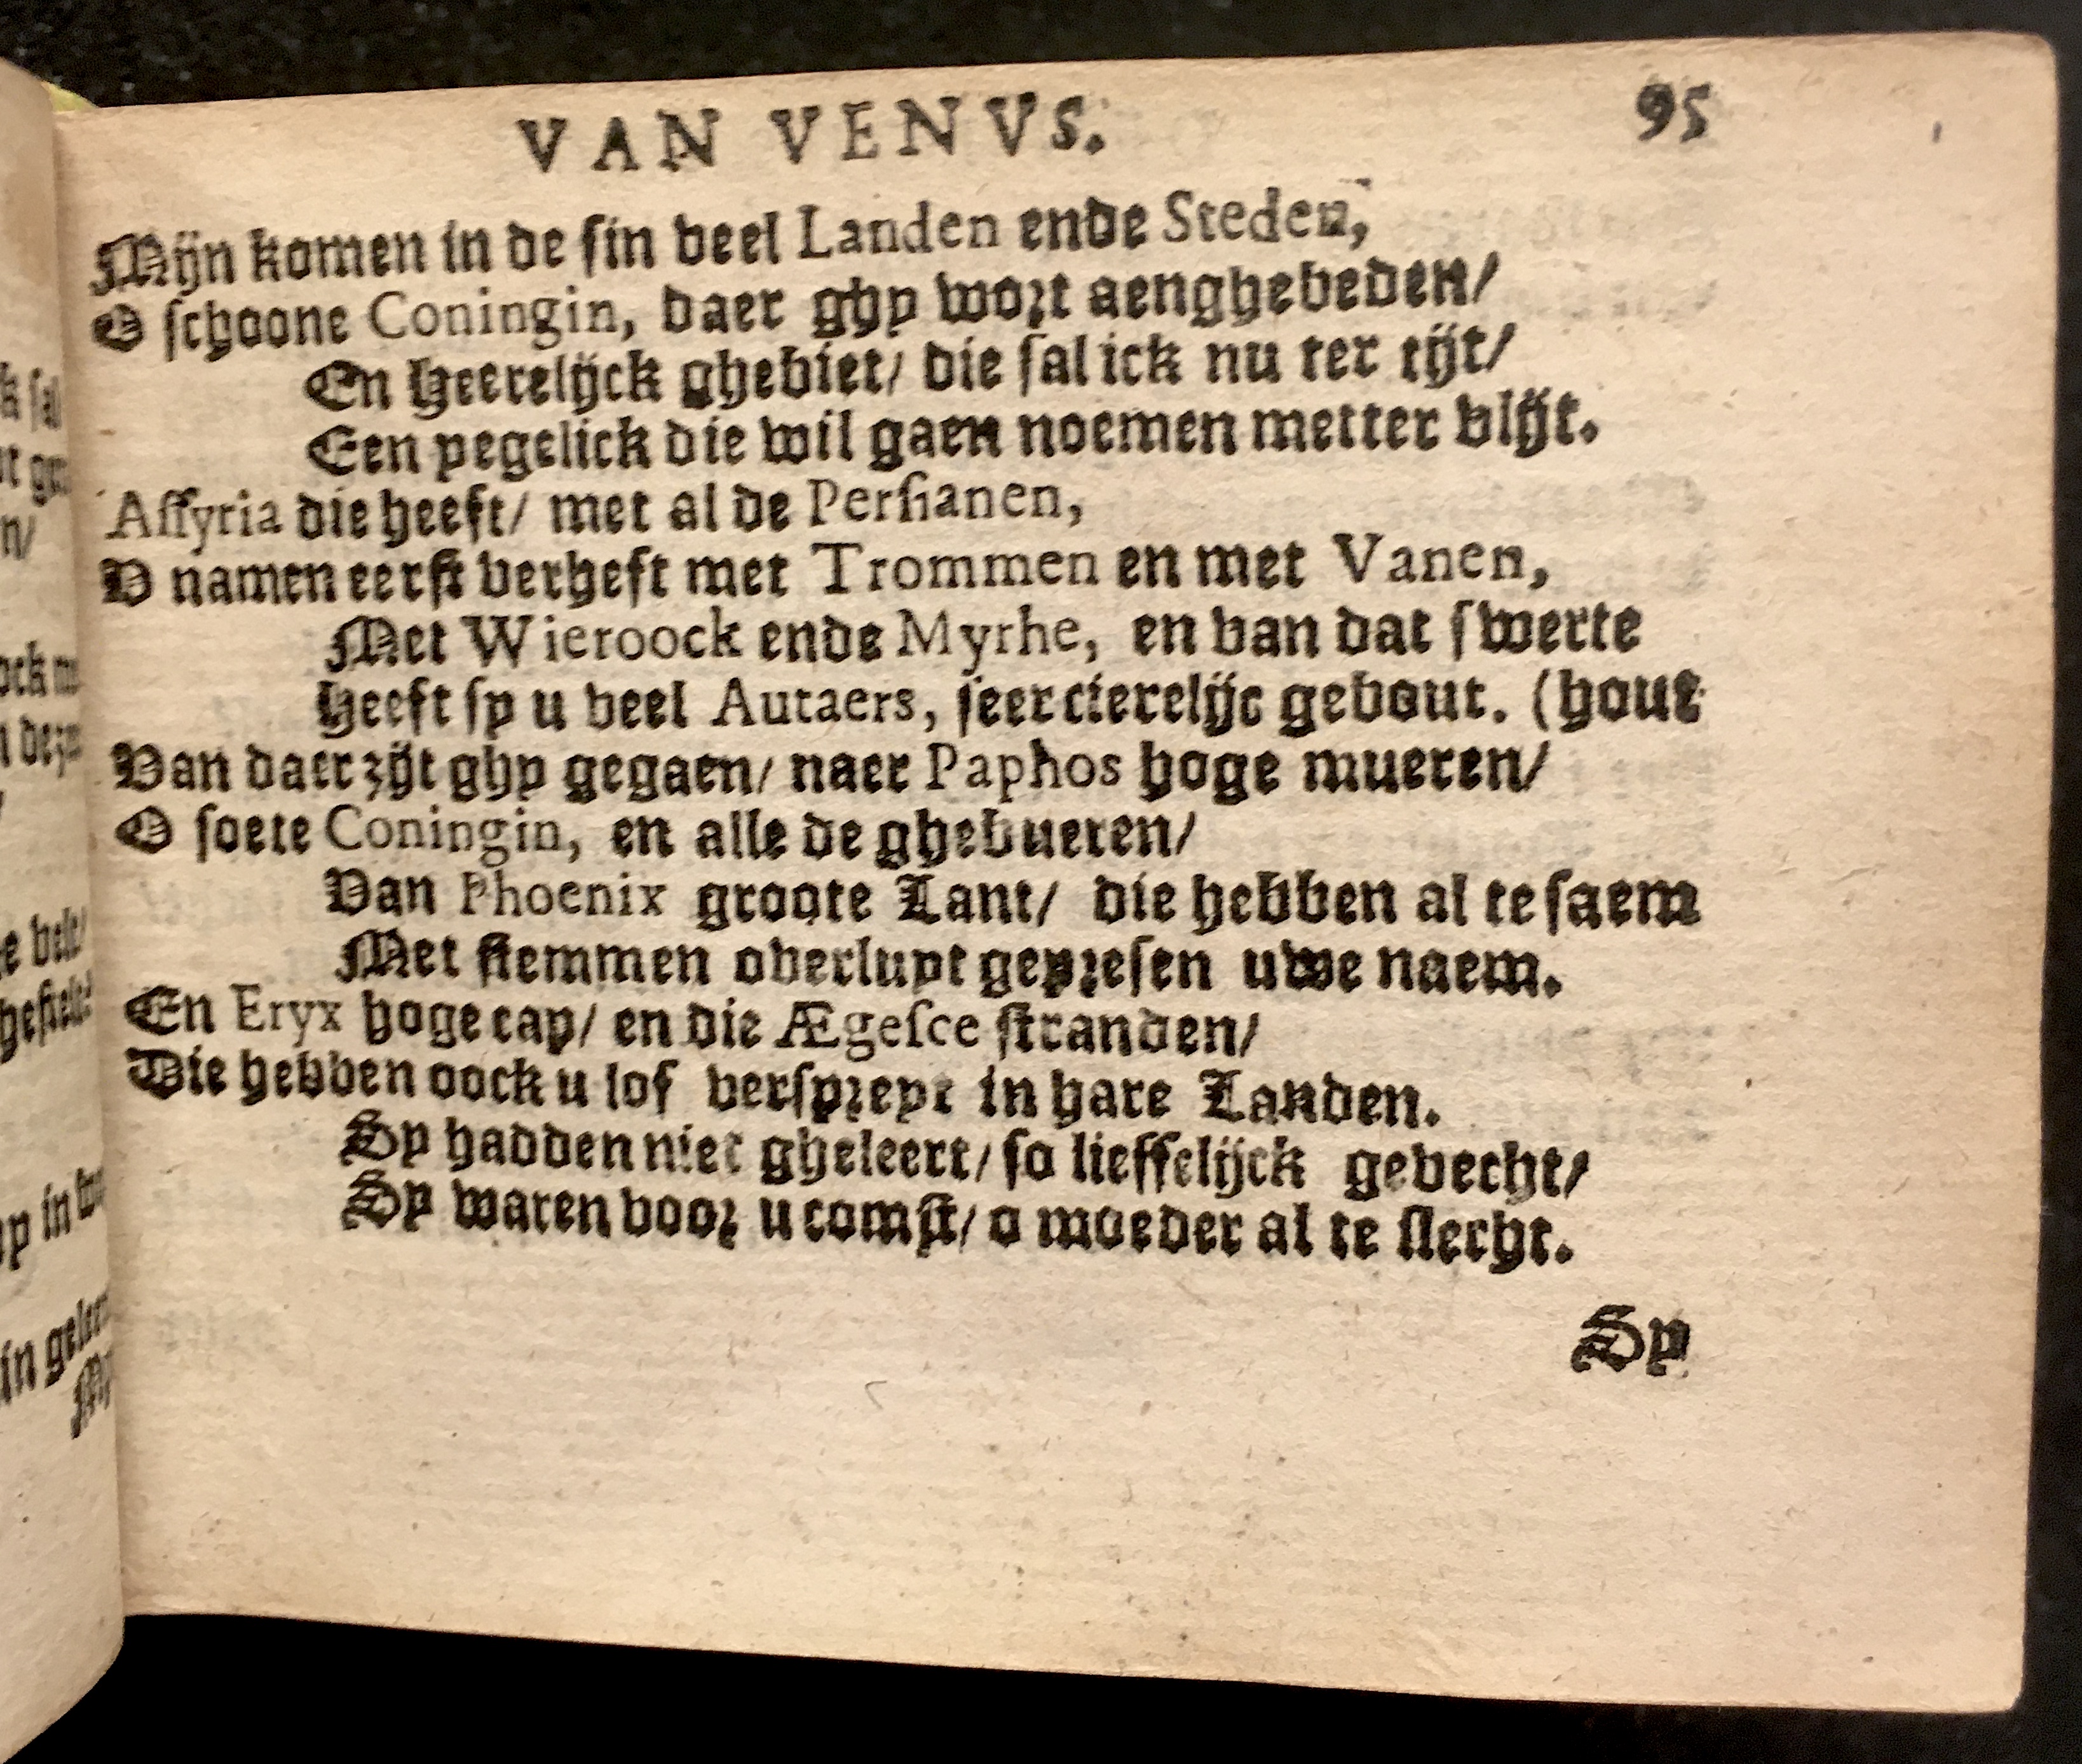 VAN VENVS. 95
Mijn komen in de ſin veel Landen ende Steden,
O ſchoone Coningin, daer ghy wort aenghebeden/
En Heerelijck ghebiet/ die ſal ick nu ter tijt/
Een yegelick die wil gaen noemen metter vlijt.
Aſſyria die heeft/ met al de Perſianen,
V namen eerſt verheft met Trommen en met Vanen,
Met Wieroock ende Myrhe, en van dat ſwerte
Heeft ſy u veel Autaers, ſeer cierelijc gebout. (hout
Van daer zijt ghy gegaen/ naer Paphos hoge mueren/
O ſoete Coningin, en alle de ghebueren/
Van Phoenix groote Lant/ die hebben al te ſaem
Met ſtemmen overluyt gepreſen uwe naem.
En Eryx hoge cap/ en die Ægeſce ſtranden/
Die hebben oock u lof verſpreyt in hare Landen.
Sy hadden niet gheleert/ ſo lieffelijck gevecht/
Sy waren voor u comſt/ o moeder al te ſlecht.
Sy